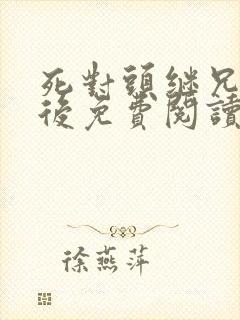 死對頭继兄
後免費閱讀
徐燕萍